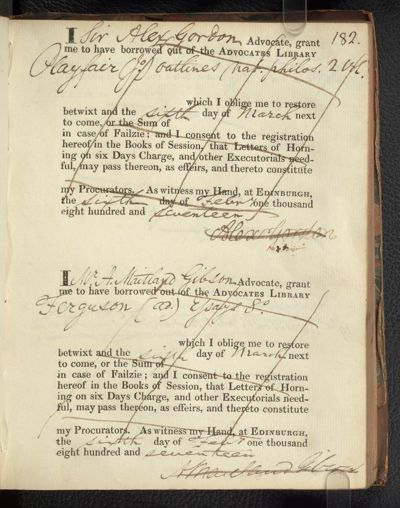 182.
I Sir Alexr Gordon Advocate, grant
me to have borrowed out of the ADVOCATES LIBRARY
Playfair (Jo) outlines (nat. philos. 2 vol.
which I oblige me to restore
betwixt and the sixth day of March next
to come, or the Sum of
in case of Failzie; and I consent to the registration
hereof in the Books of Session, that Letters of Horn-
ing on six Days Charge, and other Executorials need-
ful, may pass thereon, as effeirs, and thereto constitute
my Procurators. As witness my Hand, at EDINBURGH,
the sixth day of Febry one thousand
eight hundred and seventeen
Alexr Gordon
I Mr A. Maitland Gibson Advocate, grant
me to have borrowed out of the ADVOCATES LIBRARY
Ferguson (ad) Essays 8o
which I oblige me to restore
betwixt and the sixth day of March next
to come, or the Sum of
in case of Failzie; and I consent to the registration
hereof in the Books of Session, that Letters of Horn-
ing on six Days Charge, and other Executorials need-
ful, may pass thereon, as effeirs, and thereto constitute
my Procurators. As witness my Hand, at EDINBURGH,
the sixth day of Feby one thousand
eight hundred and seventeen
A Maitland Gibson